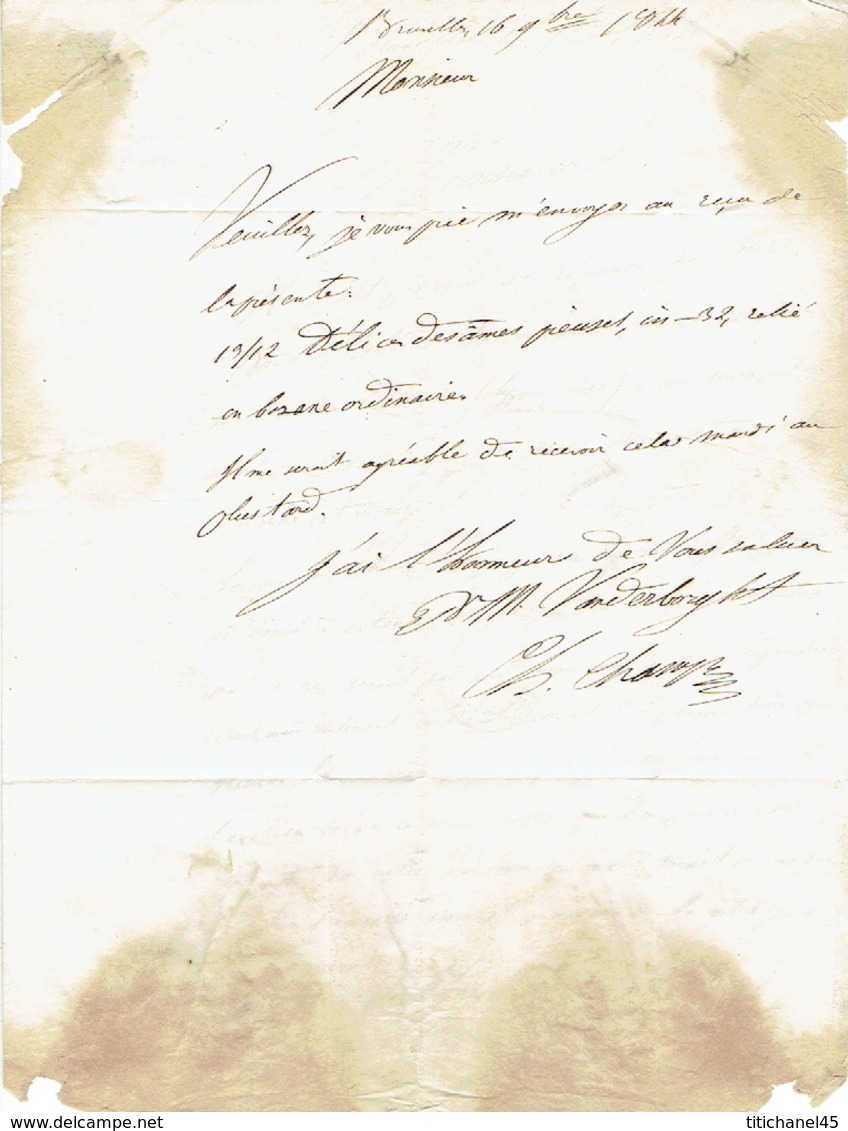 Bruxelles, 16 9bre 1844
Monsieur
Veuillez, je vous prie m'envoyer au reçu de
la présente:
13/12 Délices des âmes pieuses, in-32, relié
en bazane ordinaire.
Il me serait agréable de recevoir cela mardi au
plus tard.
J'ai l'honneur de Vous saluer
M. Vanderborght
Ch.
titichanel45